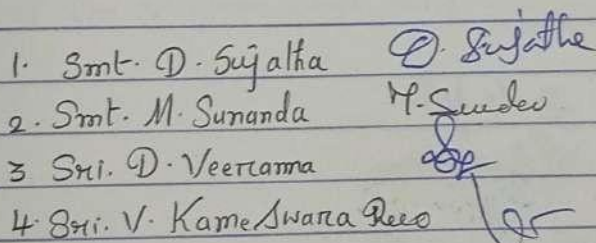 1. Smt. D. Sujatha D. Sujatha
2. Smt. M. Sunanda M.
3 Sri. D. Veeranna
4. Sri. V. Kameswara Rao